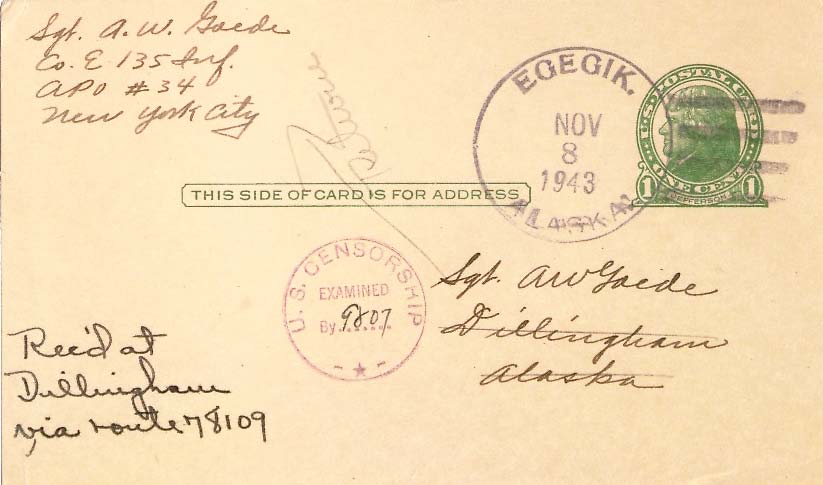 Sgt. A. W. Goede
Co. E 135 Inf.
APO #34
New York City
Return
EGEGIK.
NOV
8
1943
ALASKA
U.S. POSTAL CARD
ONE CENT
1 JEFFERSON 1
THIS SIDE OF CARD IS FOR ADDRESS
U. S. CENSORSHIP
EXAMINED
By 9807
Sgt. AW Goede
Dillingham
Alaska
Rec'd at
Dillingham
via route 78109